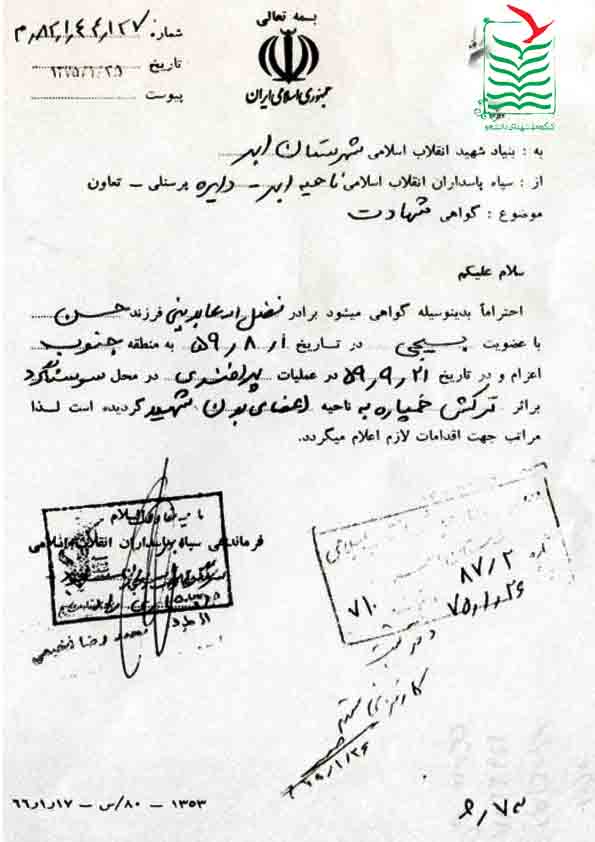 بسمه تعالی
جمهوری اسلامی ایران
شماره ۸۲/۱/۴۴/۱۲۷/م
تاریخ ۱۳۷۵/۱/۲۵
پیوست
کنگره ملی شهدای دانشجو
به : بنیاد شهید انقلاب اسلامی شهرستان ابهر
از : سپاه پاسداران انقلاب اسلامی ناحیه ابهر - دایره پرسنلی - تعاون
موضوع : گواهی شهادت
سلام علیکم
احتراماً بدینوسیله گواهی میشود برادر فضل اله عابدینی فرزند حسن
با عضویت بسیجی در تاریخ ۵۹/۸/۱ به منطقه جنوب
اعزام و در تاریخ ۵۹/۹/۲۱ در عملیات پدافندی در محل سوسنگرد
براثر ترکش خمپاره به ناحیه اعضای بدن شهید گردیده است لذا
مراتب جهت اقدامات لازم اعلام میگردد.
فرماندهی سپاه پاسداران انقلاب اسلامی
محمد رضا
اسلامی
۸۷/۲
۷۵/۱/۲۶
۷۱۰
۱۳۵۳ - ۸۰/س - ۶۶/۱/۱۷